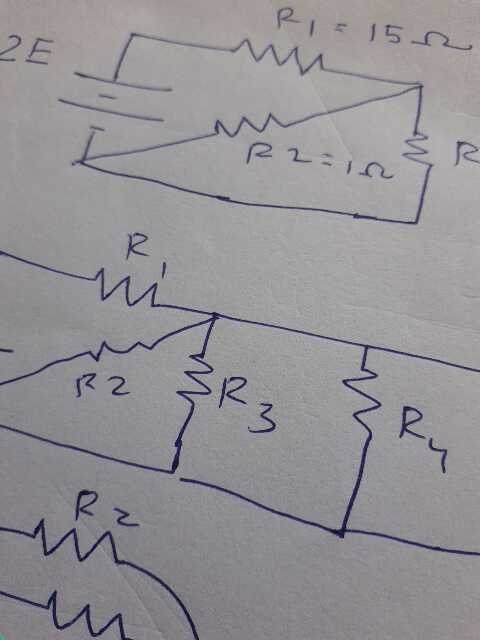 R1 = 15Ω
2E
R2=1Ω
R
R1
R2
R3
R4
R2